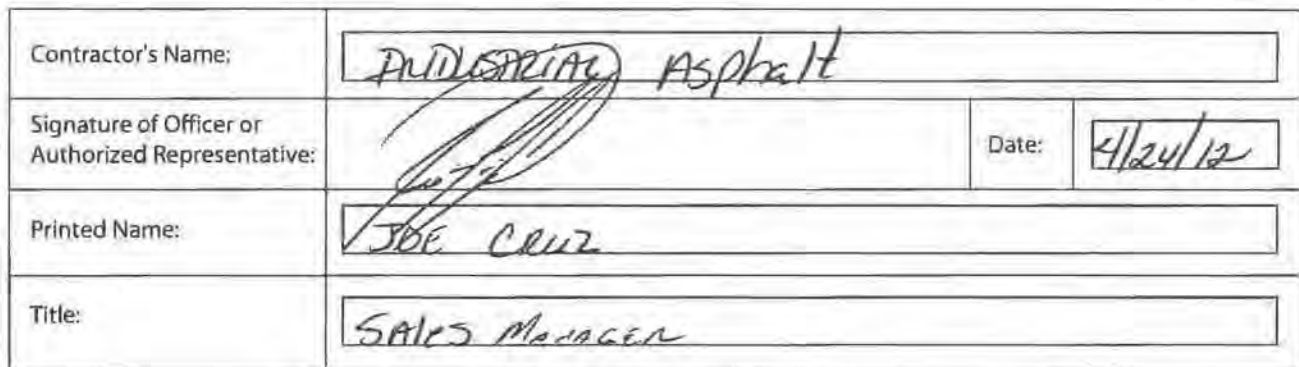 Contractor's Name: INDUSTRIAL Asphalt
Signature of Officer or
Authorized Representative: Date: 4/24/12
Printed Name: JOE CRUZ
Title: SALES MANAGER